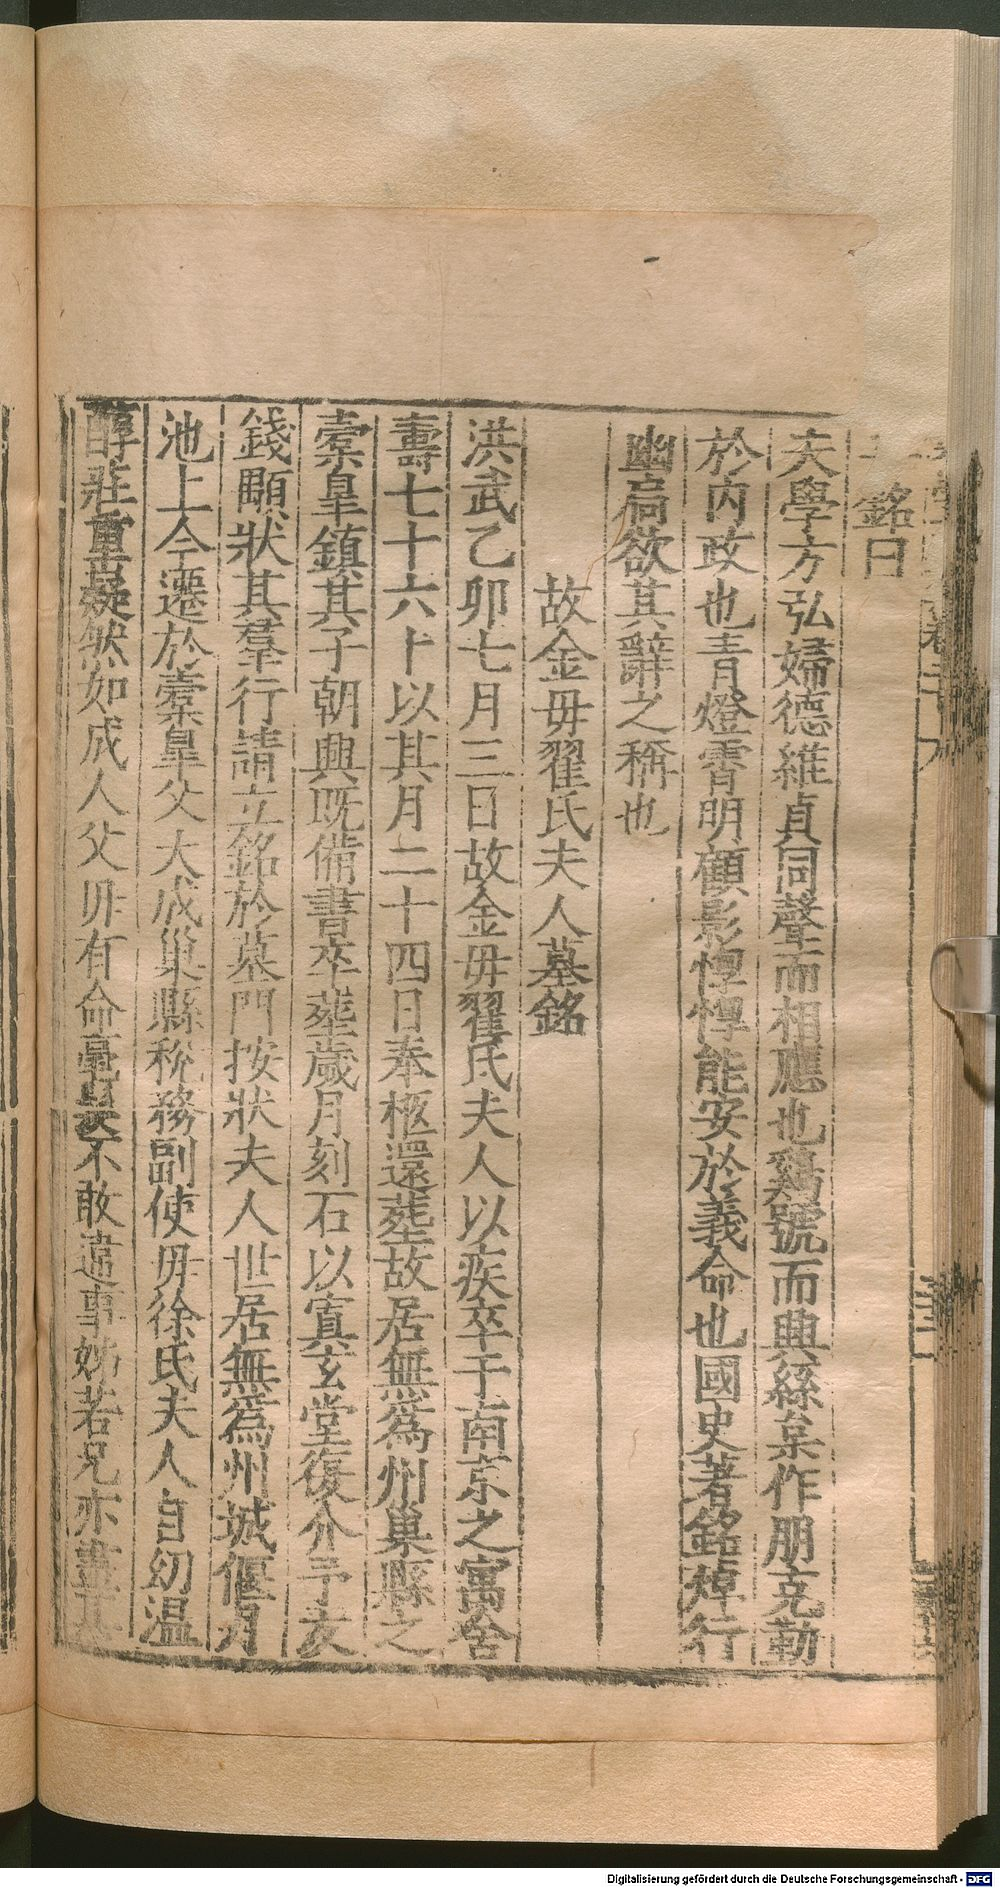 銘曰
夫學方弘婦德維貞同聲而相應也鷄號而興絲枲作朋克勤
於内政也青燈霄明顧影惸惸能安於義命也國史著銘焯行
幽扃欲其辭之稱也
故金毋翟氏夫人墓銘
洪武乙卯七月三日故金毋翟氏夫人以疾卒于南京之寓舍
壽七十六卜以其月二十四日奉柩還塟故居無為州巢縣之
槖皇鎮其子朝興既備書卒塟歲月刻石以寘玄堂復介予友
錢顒狀其羣行請立銘於墓門按狀夫人世居無為州城偃月
池上今遷於槖皐父大成巢縣稅務副使毋徐氏夫人自幼温
醇莊重凝然如成人父毋有命毫髮不敢違事姊若兄亦盡其
Digitalisierung gefördert durch die Deutsche Forschungsgemeinschaft - DFG